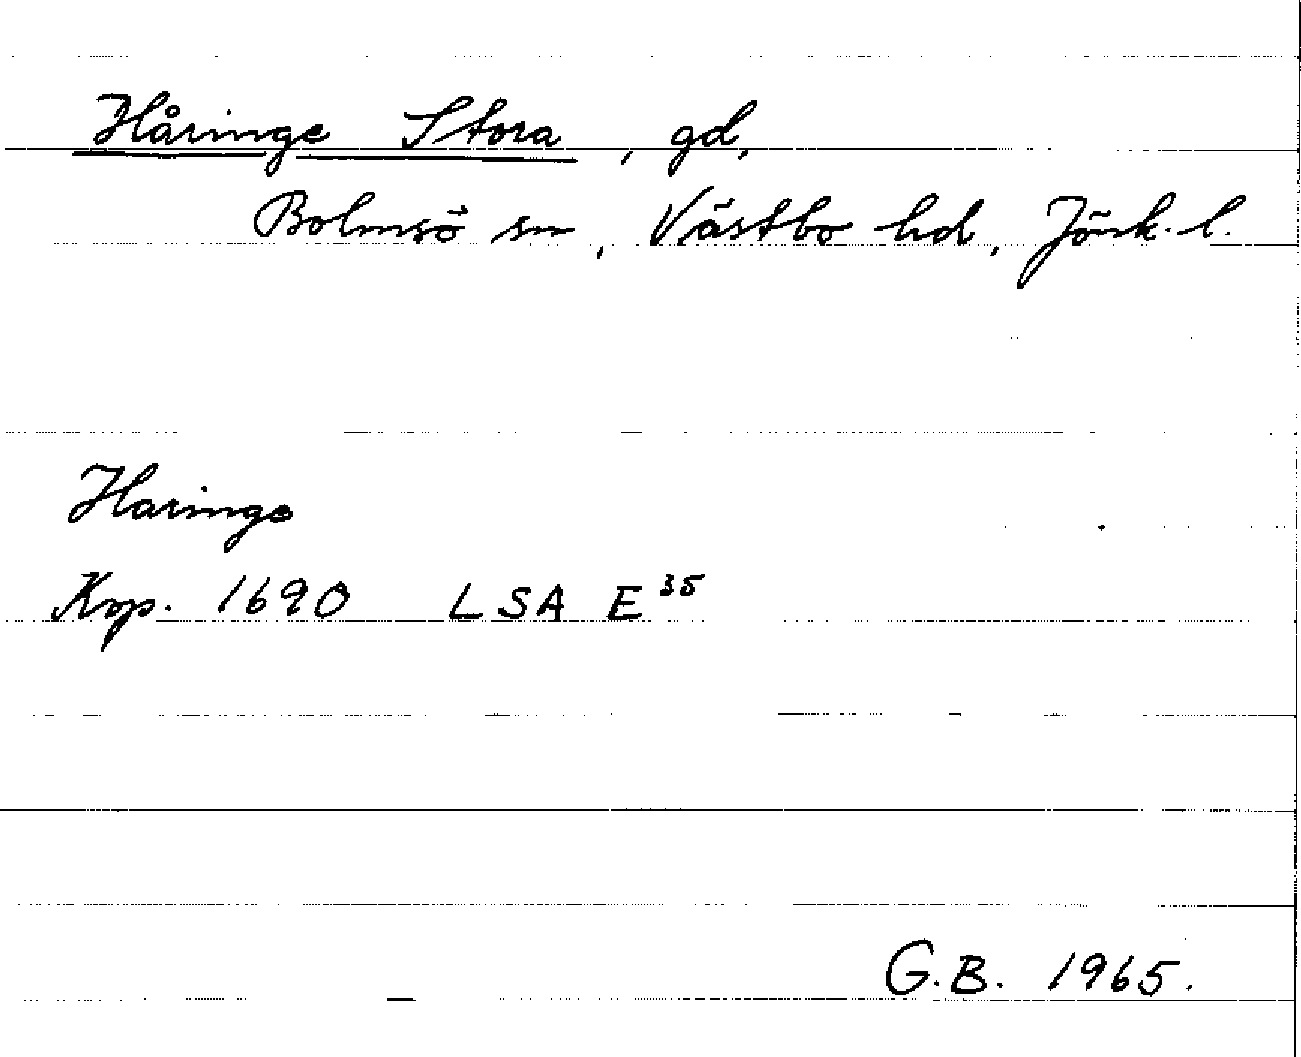 Håringe Stora, gd,
Bolmsö sn, Västbo hd, Jönk. l.
Haringe
Kop. 1690 LSA E 35
G.B. 1965.